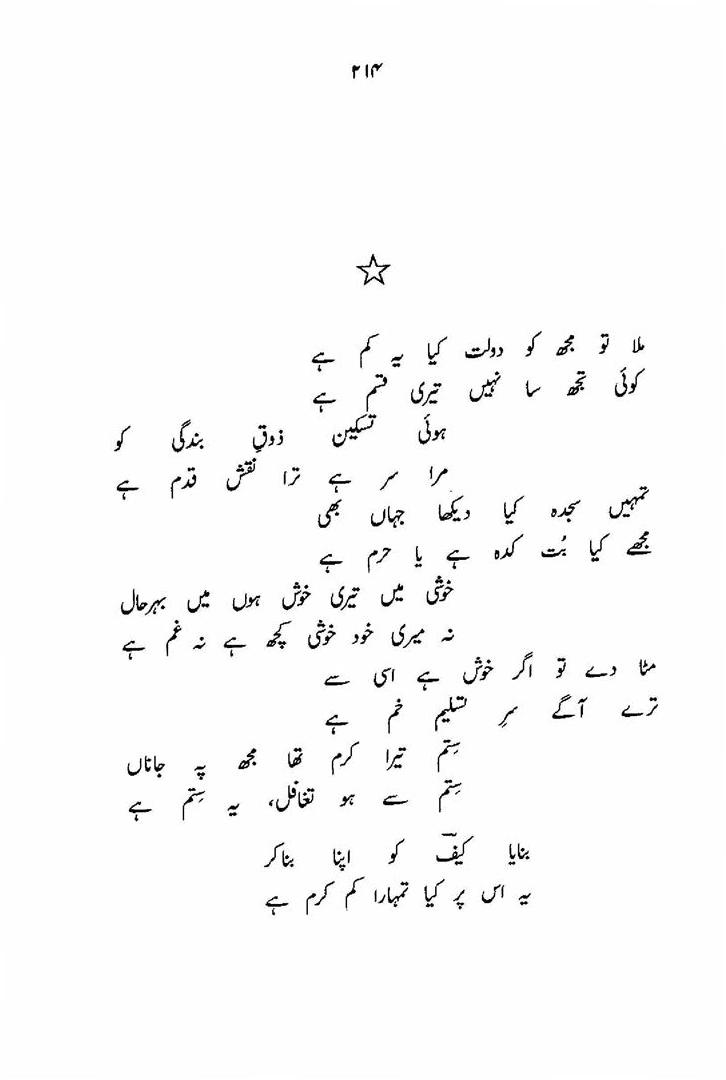 ۲۱۴
ملا تو مجھ کو دولت کیا یہ کم ہے
کوئی تجھ سا نہیں تیری قسم ہے
ہوئی تسکین ذوقِ بندگی کو
مرا سر ہے ترا نقش قدم ہے
تمہیں سجدہ کیا دیکھا جہاں بھی
مجھے کیا بُت کدہ ہے یا حرم ہے
خوشی میں تیری خوش ہوں میں بہرحال
نہ میری خود خوشی کچھ ہے نہ غم ہے
مٹا دے تو اگر خوش ہے اسی سے
ترے آگے سرِ تسلیم خم ہے
سِتم تیرا کرم تھا مجھ پہ جاناں
سِتم سے ہو تغافل، یہ سِتم ہے
بنایا کیفؔ کو اپنا بناکر
یہ اس پر کیا تمہارا کم کرم ہے